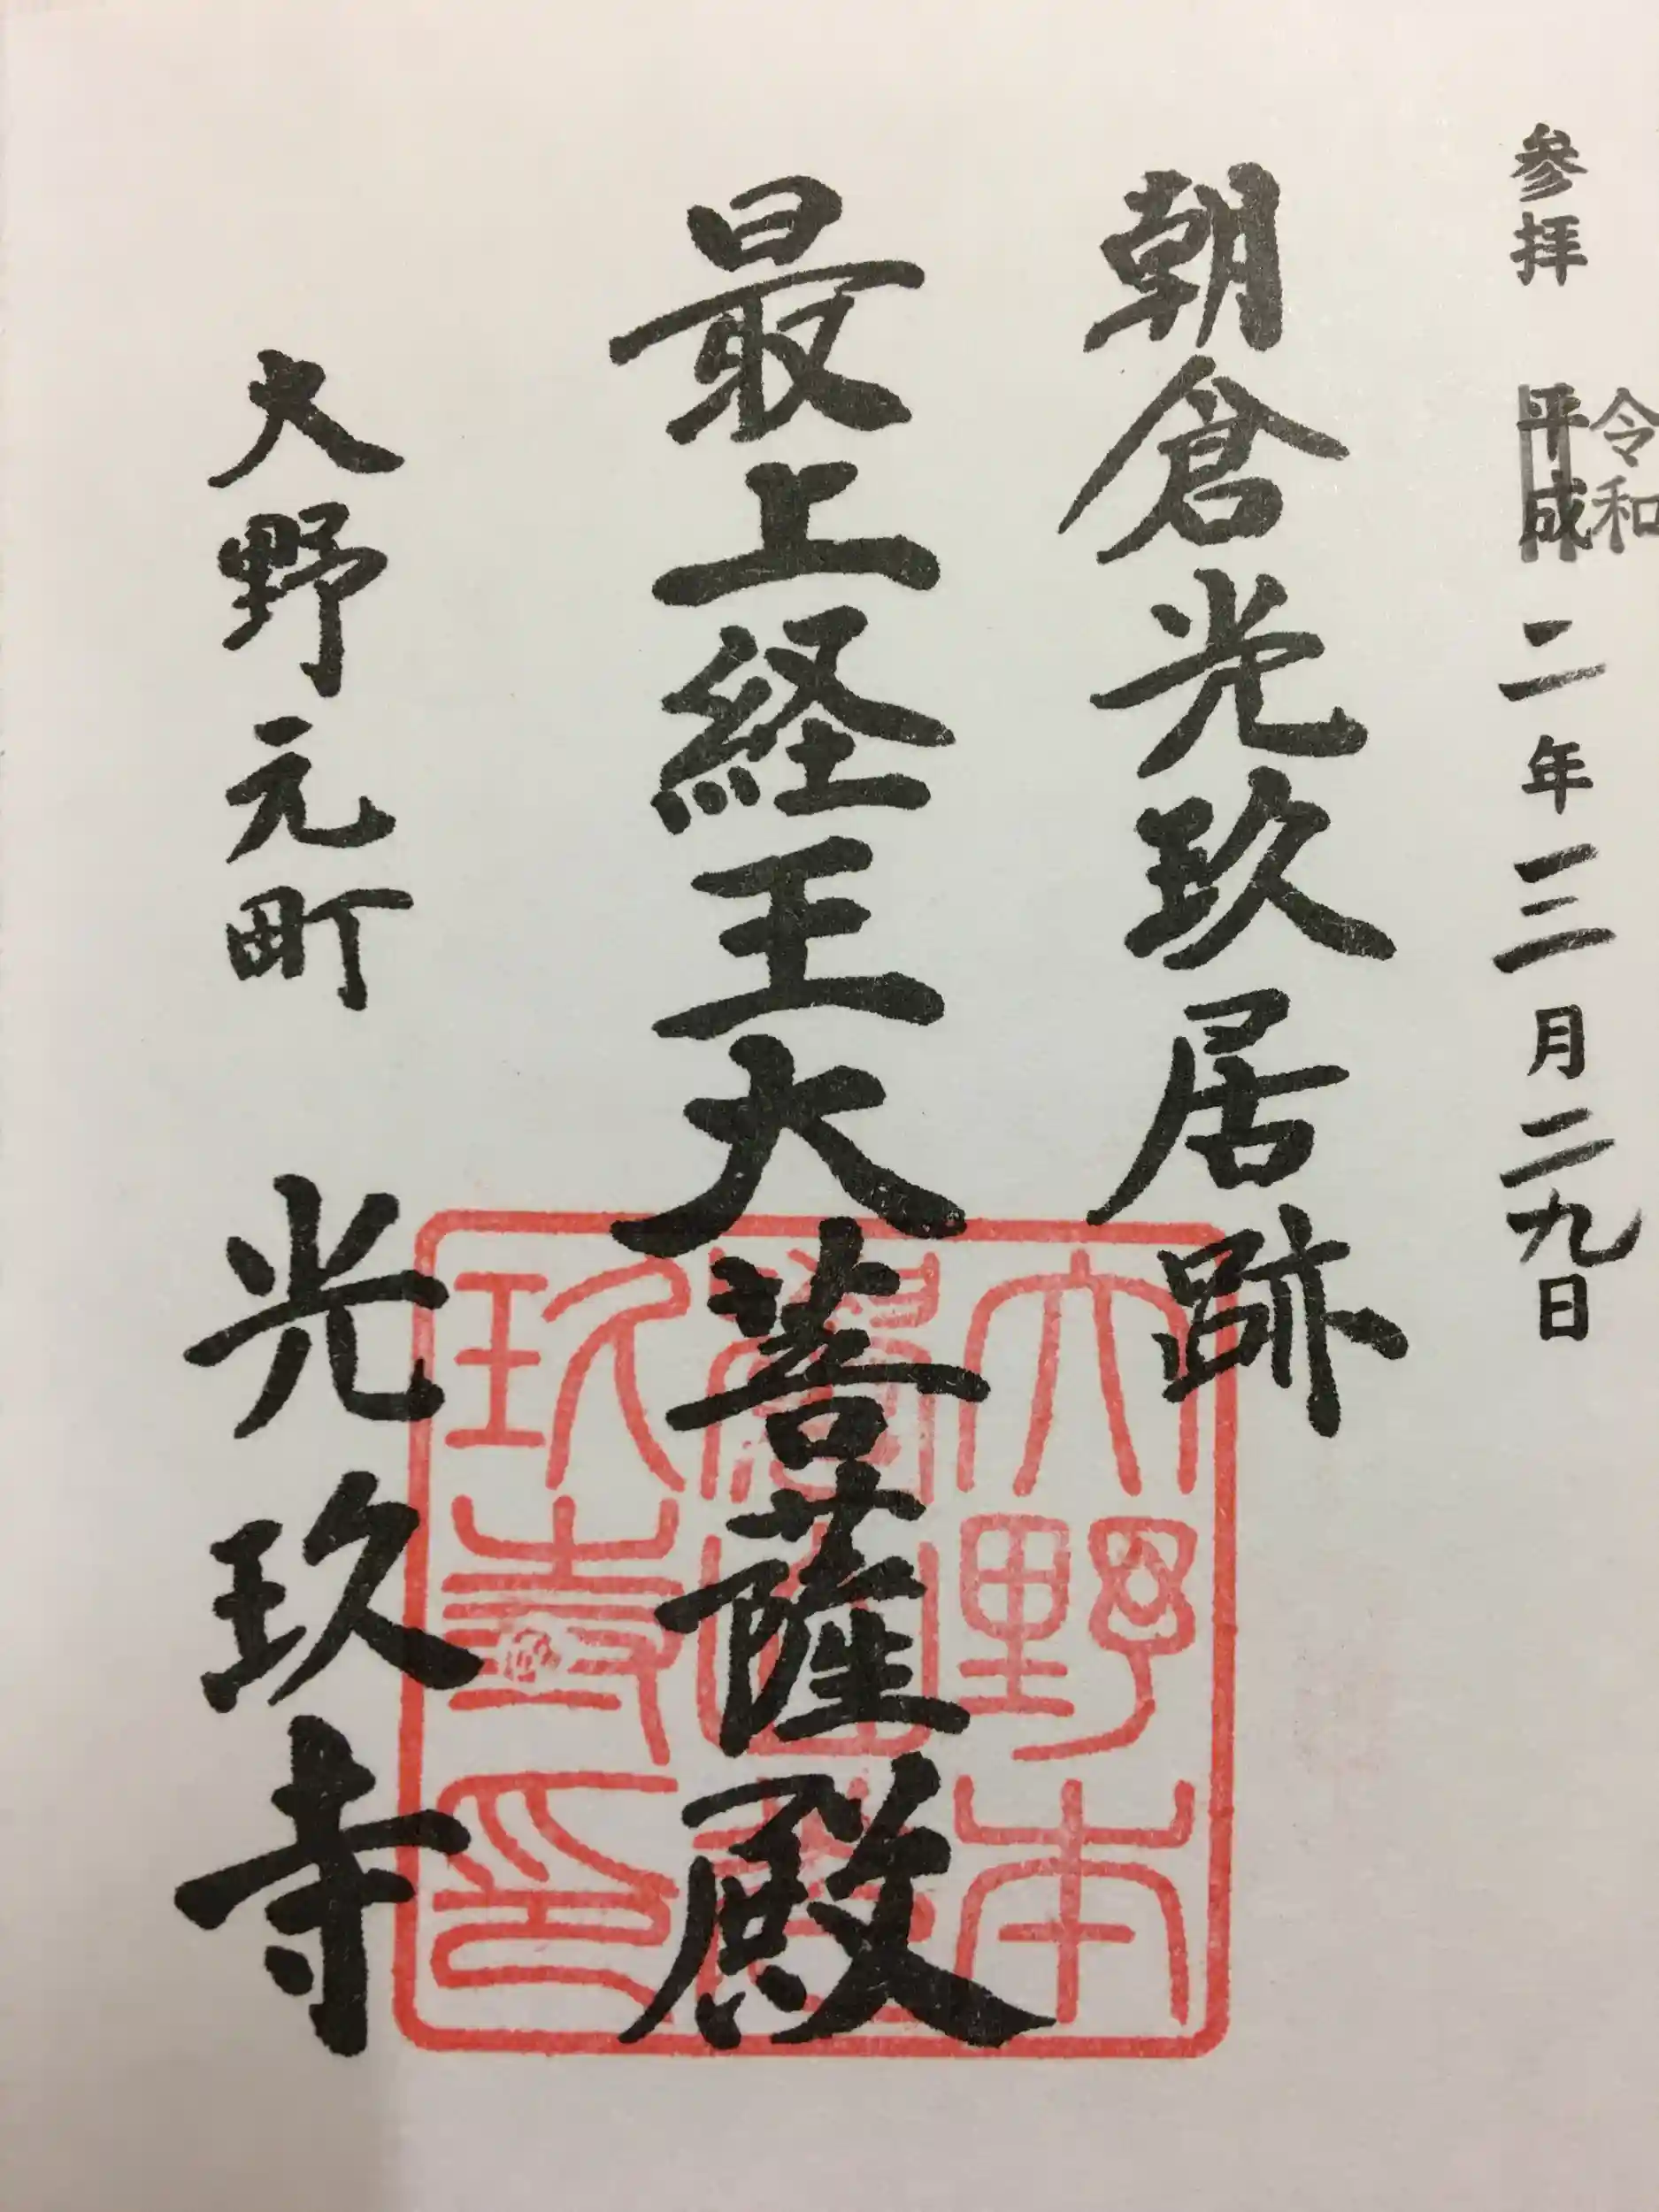 参拝 令和 平成 二年三月二九日
朝倉光玖居跡
最上経王大菩薩殿
大野元町 光玖寺
大野本
玖寺印